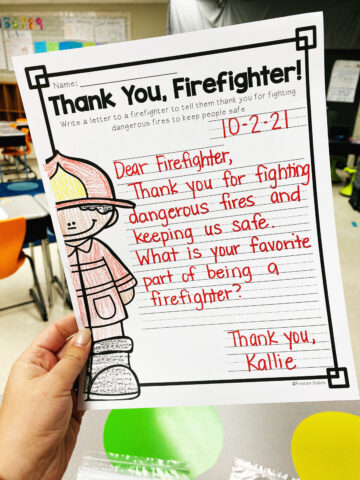 Name:
Thank You, Firefighter!
Write a letter to a firefighter to tell them thank you for fighting
dangerous fires to keep people safe.
10-2-21
Dear Firefighter,
Thank you for fighting
dangerous fires and
keeping us safe.
What is your favorite
part of being a
firefighter?
Thank you,
Kallie